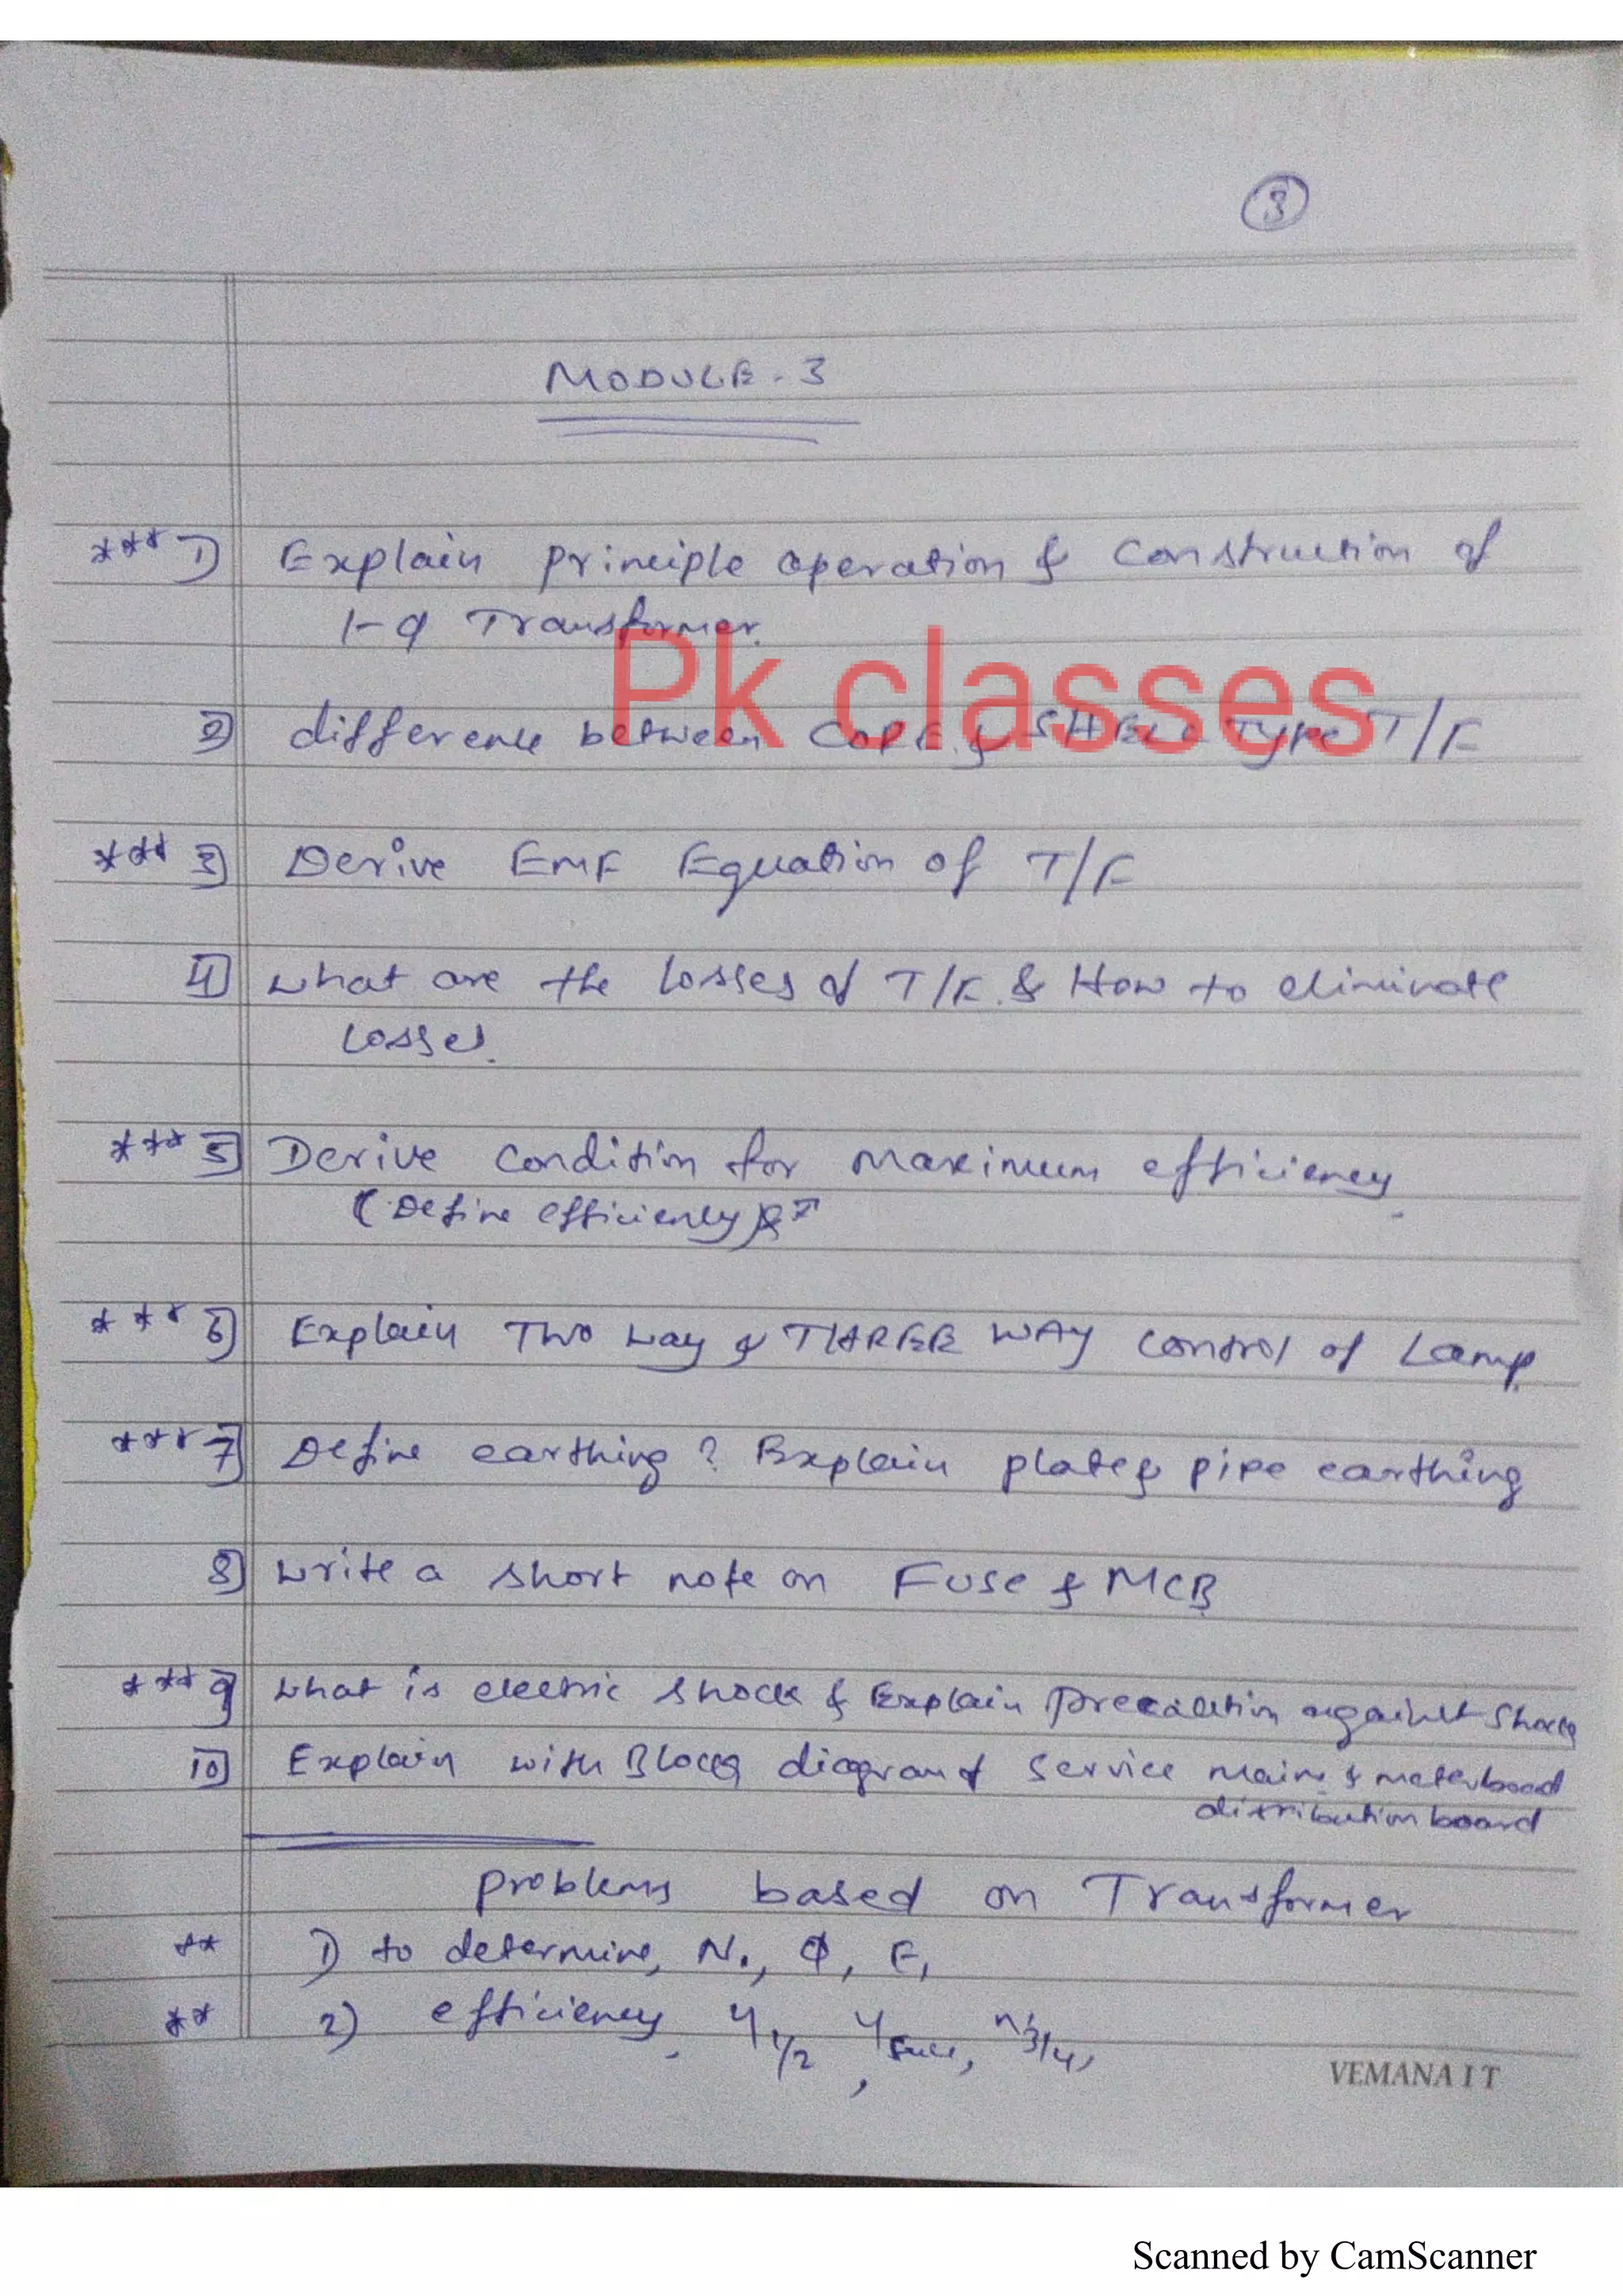 3
MODULE-3
*** 1) Explain principle operation & Construction of
1-φ Transformer.
Pk classes
2) difference between CORE & SHELL Type T/F
*** 3) Derive EMF Equation of T/F
4) what are the losses of T/F. & How to eliminate
losses.
*** 5) Derive Condition for maximum efficiency
(Define efficiency)
*** 6) Explain Two way & THREE WAY control of Lamp.
*** 7) Define earthing? Explain plate & pipe earthing
8) write a short note on Fuse & MCB
*** 9) what is electric shock & Explain precaution against shock
10) Explain with Block diagram of service mains & meterboard
distribution board
problems based on Transformer
** 1) to determine, N₁, Φ, E₁
** 2) efficiency, η1/2, ηfull, η3/4,
VEMANA I T
Scanned by CamScanner